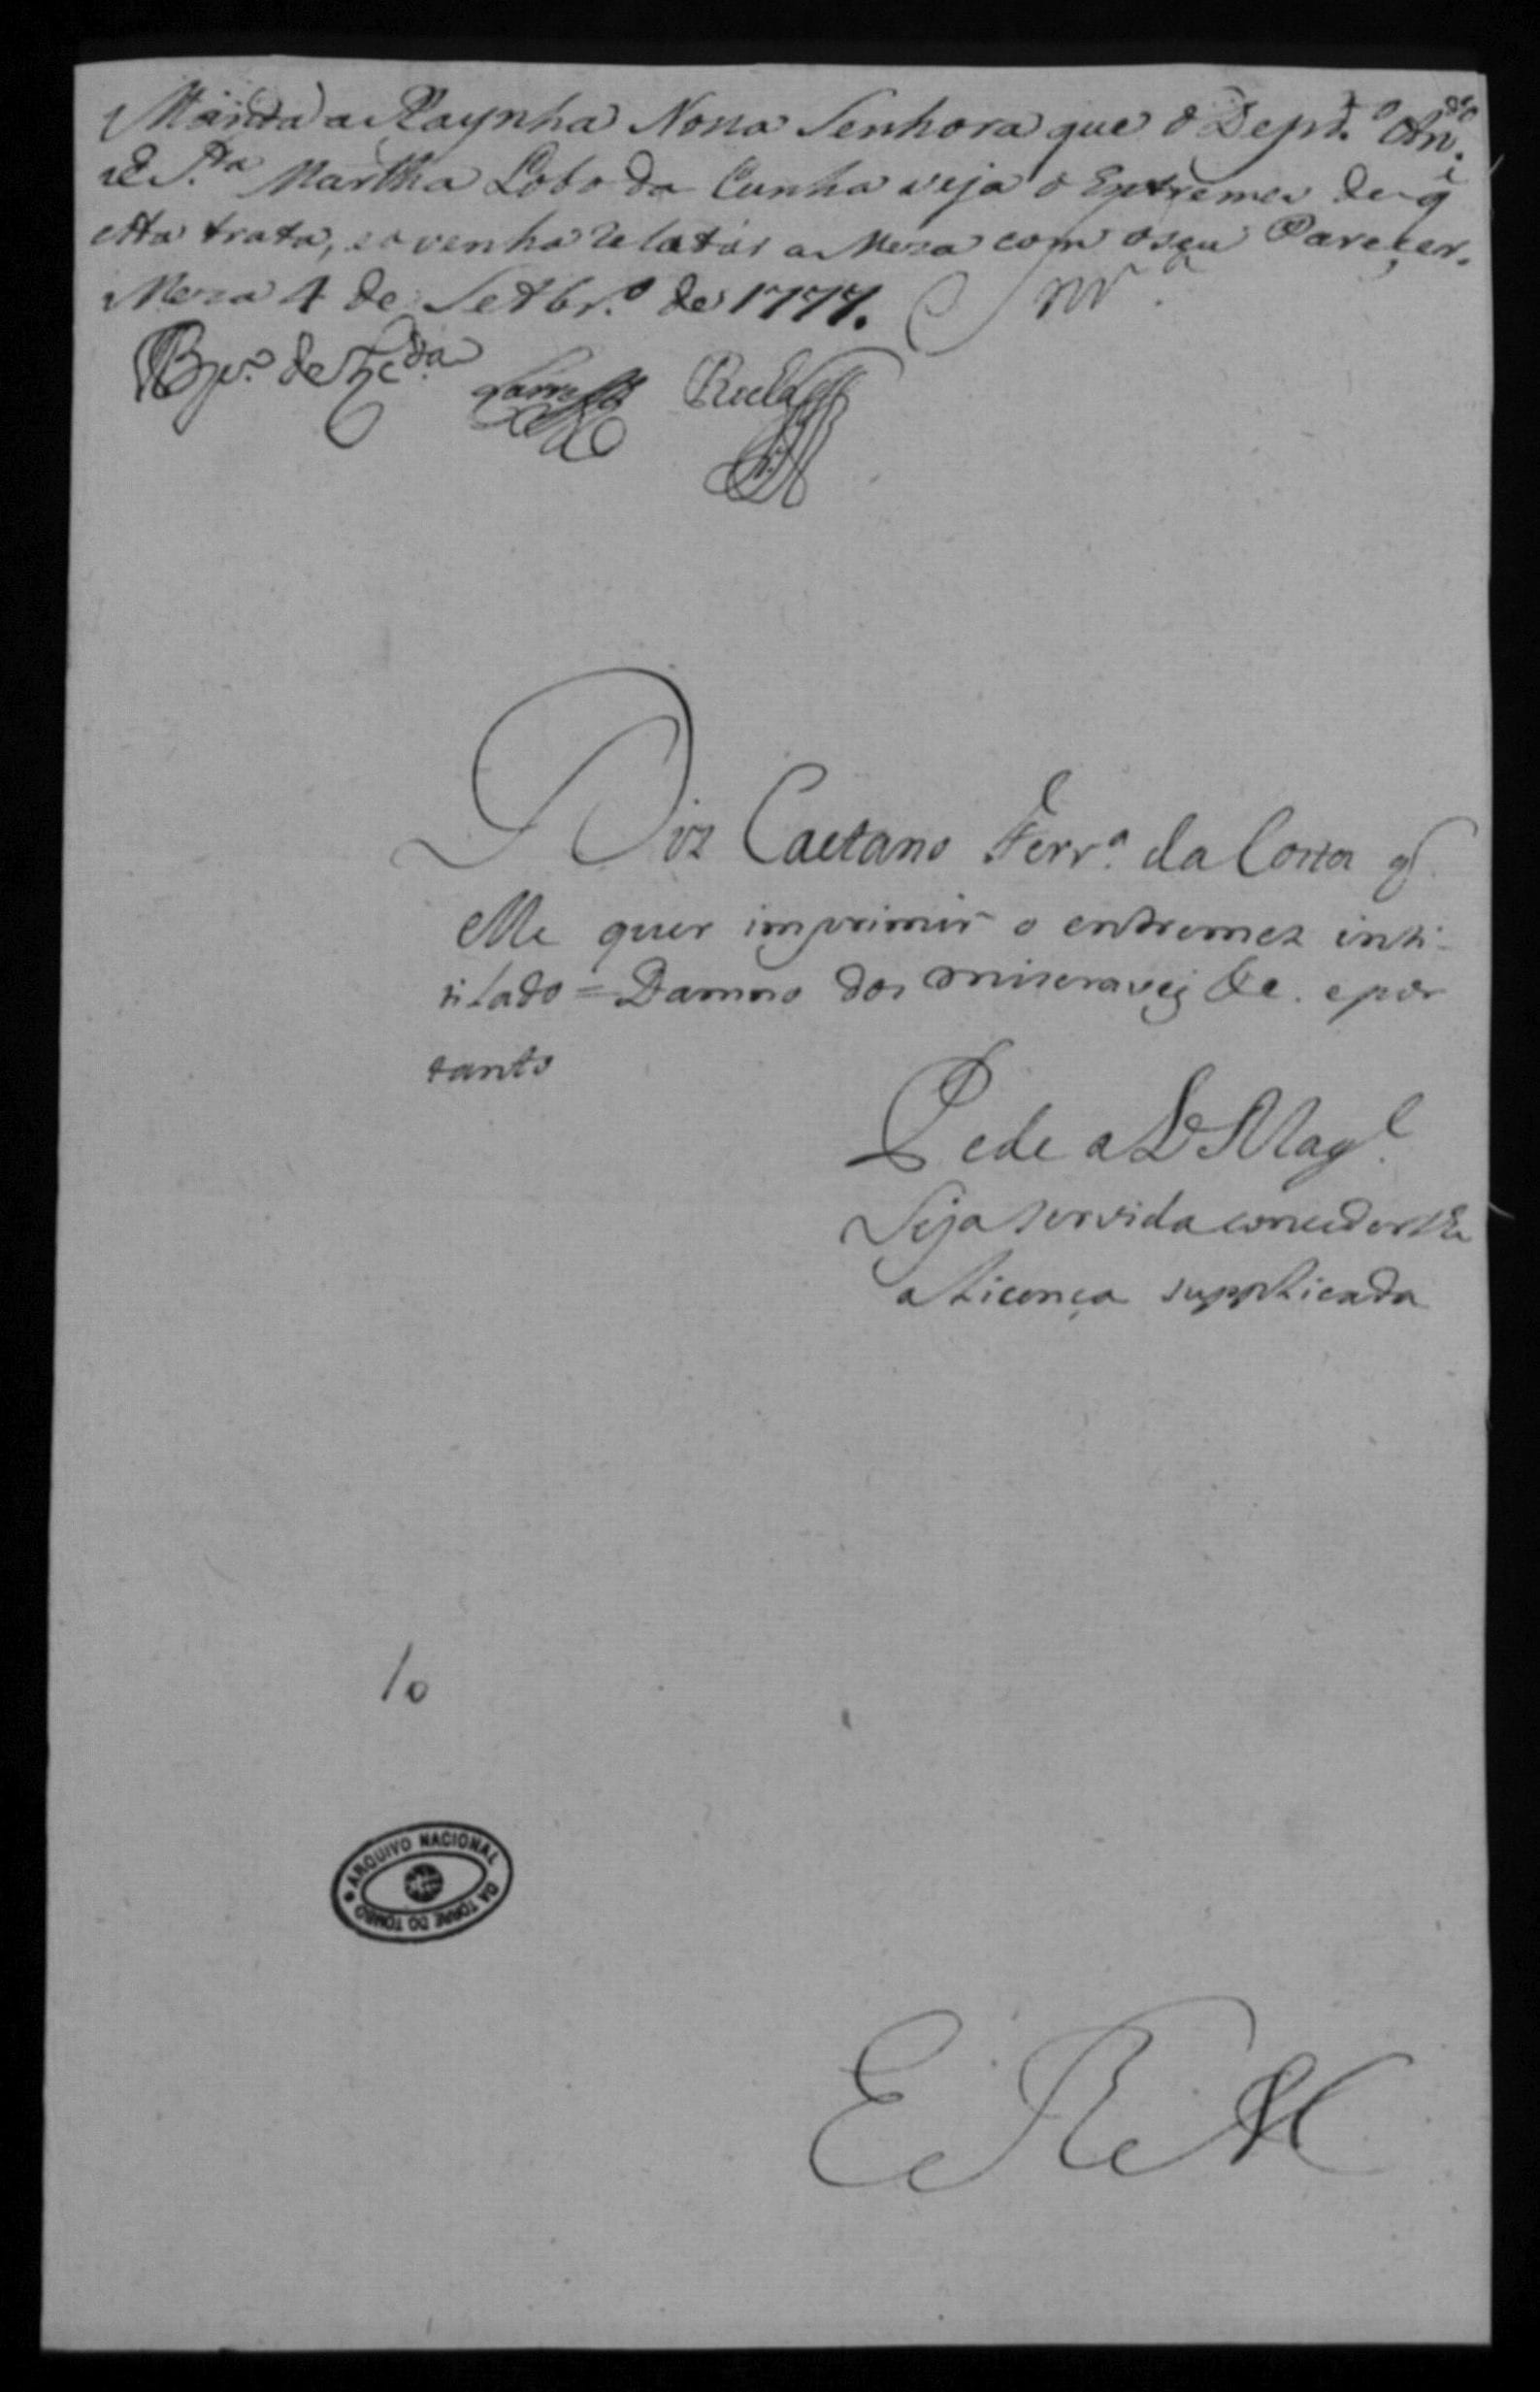 Manda a Raynha Nossa Senhora que o Dep.do An.to
de S.ta Martha Lobo da Cunha veja o Entremes de q̃
esta trata, e o venha relatar a Meza com o seu Parecer.
Meza 4 de Setbr.o de 1777.
Snr.a
Diz Caetano Ferr.a da Costa q̃
elle quer imprimir o entremes inti-
tilado = Damno dos miseraveis &c. e por
tanto
Pede a V Mag.e
Seja servida concederlhe
a Licença supplicada
10
ARQUIVO NACIONAL
DA TORRE DO TOMBO
E R M